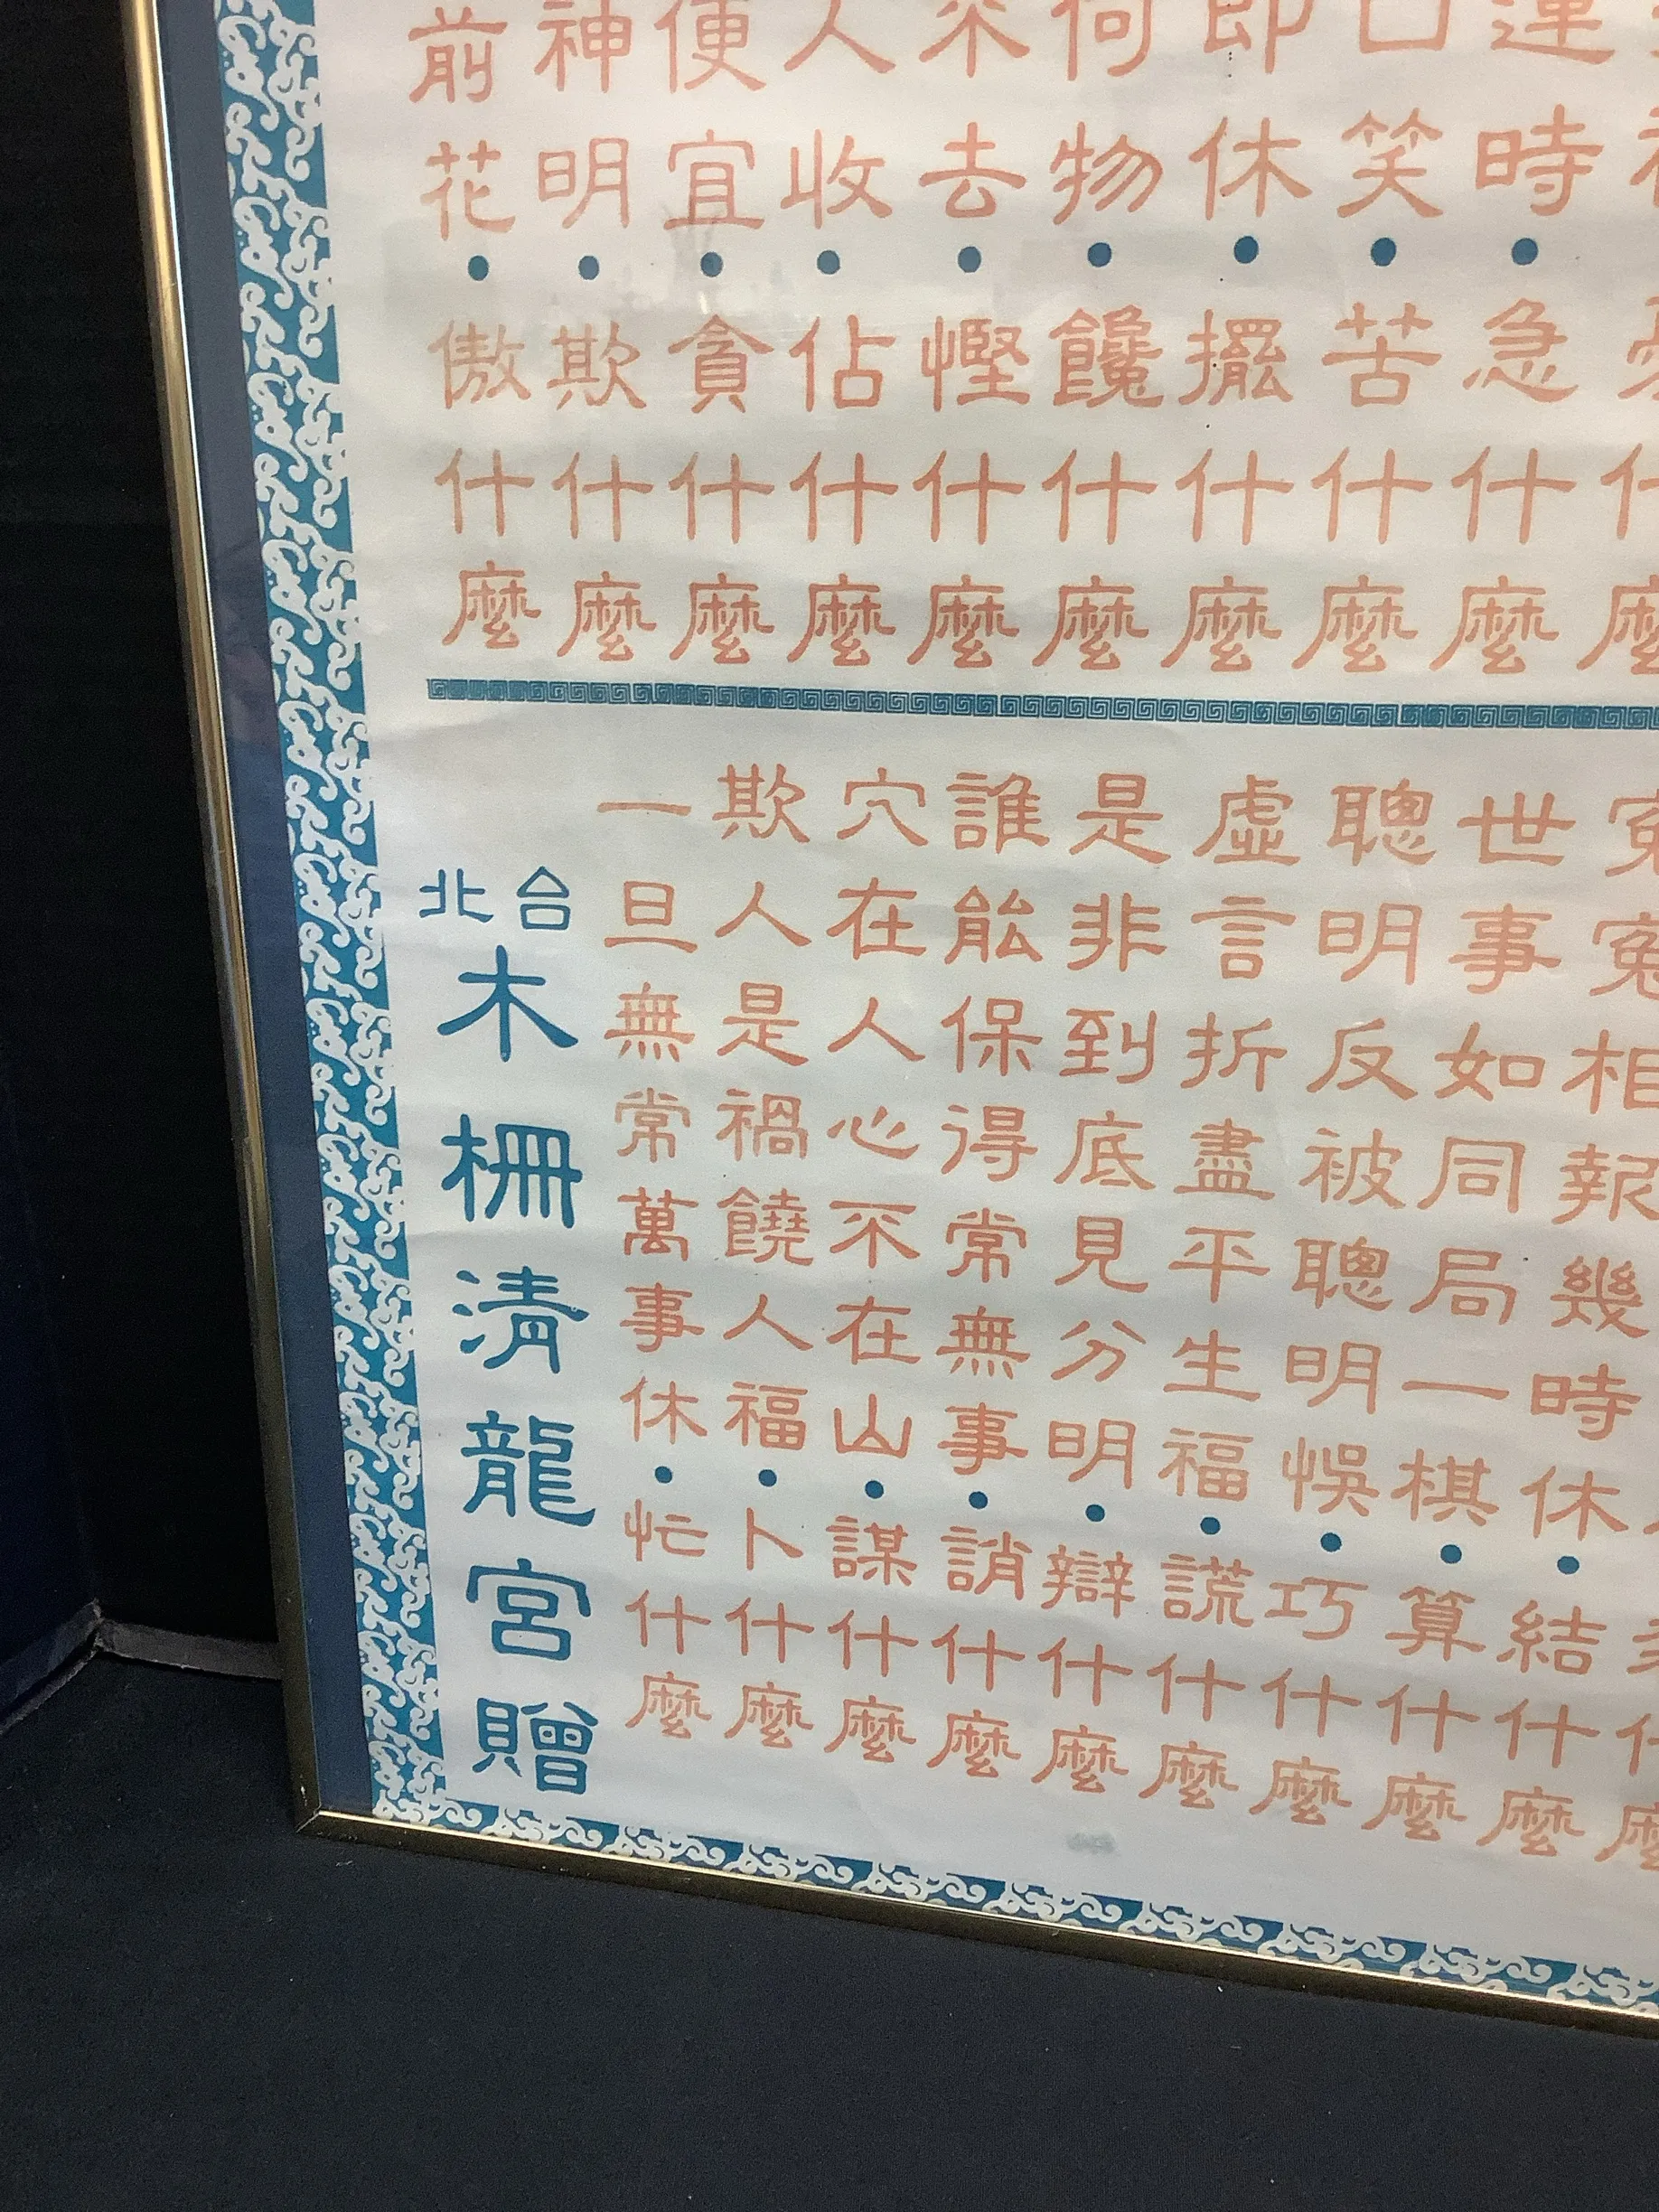 運時•急什麼
口笑•苦什麼
即休•擺什麼
何物•饞什麼
不去•慳什麼
人收•佔什麼
便宜•貪什麼
神明•欺什麼
前花•傲什麼
冤冤相報幾時休•結什麼
世事如同局一棋•算什麼
聰明反被聰明悞•巧什麼
虛言折盡平生福•謊什麼
是非到底見分明•辯什麼
誰能保得常無事•誚什麼
穴在人心不在山•謀什麼
欺人是禍饒人福•卜什麼
一旦無常萬事休•忙什麼
台北
木柵清龍宮贈